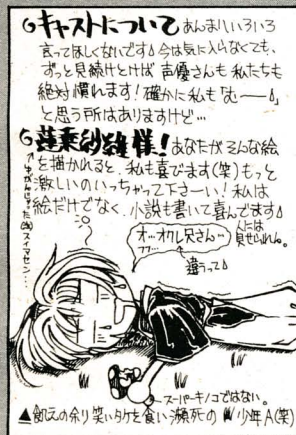 キャストについて あんまりいろいろ
言ってほしくないです。今は気に入らなくても、
ずっと見続けとけば声優さんも私たちも
絶対慣れます!確かに私も「む——。」
と思う所はありますけど…
蓮乗紗維様!あなたがそんな絵
を描かれると、私も喜びます(笑)もっと
激しいのいっちゃって下さーい!私は
絵だけでなく、小説も書いて喜んでます。
人には
見せられん。
↑ゆがんじった(笑)スイマセン…
オ…オクレ兄さん…
違うって。
スーパーキノコではない。
▲飢えの余り笑いタケを食い瀕死の少年A(笑)